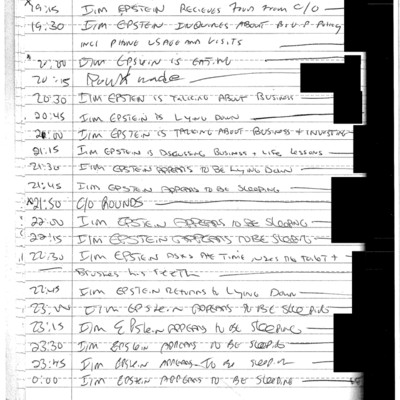 19:15 I/M EPSTEIN RECIEVES FOOD FROM C/O
19:30 I/M EPSTEIN INQUIRES ABOUT
INCL PHONE USAGE AND VISITS
*20:00 I/M EPSTEIN IS EATING
20:15 Rounds made
20:30 I/M EPSTEIN IS TALKING ABOUT BUSINESS
20:45 I/M EPSTEIN IS LYING DOWN
I/M EPSTEIN IS TALKING ABOUT BUSINESS + INVESTING
21:15 I/M EPSTEIN IS DISCUSSING BUSINESS + LIFE LESSONS
21:30 I/M EPSTEIN APPEARS TO BE LYING DOWN
21:45 I/M EPSTEIN APPEARS TO BE SLEEPING
*21:50 C/O ROUNDS
22:00 I/M EPSTEIN APPEARS TO BE SLEEPING
22:15 I/M EPSTEIN APPEARS TO BE SLEEPING
22:30 I/M EPSTEIN ASKS THE TIME USES THE TOILET +
BRUSHES HIS TEETH
22:45 I/M EPSTEIN RETURNS TO LYING DOWN
23:00 I/M EPSTEIN APPEARS TO BE SLEEPING
23:15 I/M EPSTEIN APPEARS TO BE SLEEPING
23:30 I/M EPSTEIN APPEARS TO BE SLEEPING
23:45 I/M EPSTEIN APPEARS TO BE SLEEPING
0:00 I/M EPSTEIN APPEARS TO BE SLEEPING